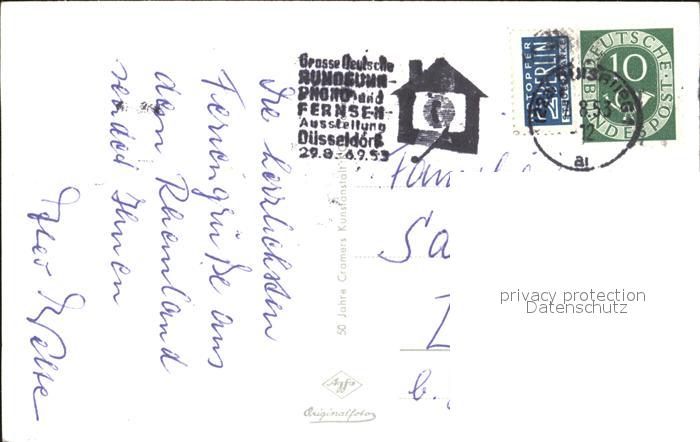 Die herzlichsten
Feriengrüße aus
dem Rheinland
sendet Ihnen
Grosse Deutsche
RUNDFUNK-
PHONO- und
FERNSEH-
Ausstellung
Düsseldorf
29.8.-6.9.53
NOTOPFER
2 BERLIN
STEUERMARKE
DEUTSCHE
10
BUNDESPOST
8.53
-12
al
Familie
Sa
b.
50 Jahre Cramers Kunstanstalt
Agfa
Originalfoto
privacy protection
Datenschutz